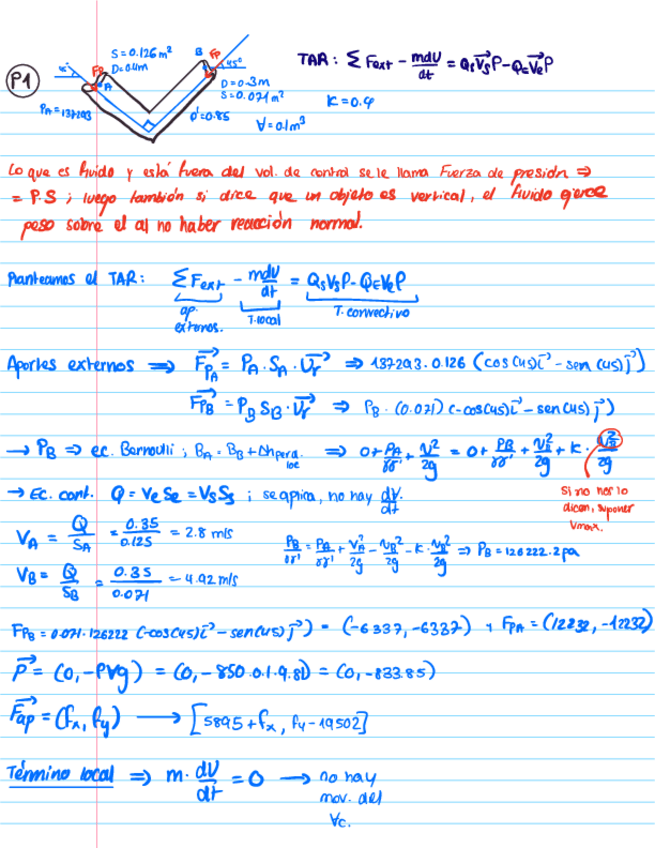 P1
S=0.126m²
D=0.4m
45°
Fp
A
B
Fp
45°
PA=137293
D=0.3m
S=0.071m²
ρ'=0.85
∀=0.1m³
TAR: ∑Fext - mdU/dt = QsVsρ-QeVeρ
K=0.4
Lo que es fluido y está fuera del vol. de control se le llama Fuerza de presión ⇒
= P.S ; luego también si dice que un objeto es vertical, el fluido ejerce
peso sobre el al no haber reacción normal.
Planteamos el TAR: ∑Fext - mdU/dt = QsVsρ-QeVeρ
ap. externos.
T.local
T. convectivo
Aportes externos ⇒ FPA = PA·SA·Ur ⇒ 137293·0.126 (cos(45)i - sen(45)j)
FPB = PB SB·Ur ⇒ PB·(0.071) (-cos(45)i - sen(45)j)
→ PB ⇒ ec. Bernoulli; BA = BB + Δhperd. loc ⇒ 0+PA/γγ'+V²/2g = 0+PB/γγ'+VB²/2g+K·VB²/2g
→ Ec. cont. Q = VeSe = VsSs ; se aplica, no hay dV/dt.
Si no nos lo
dicen, suponer
Vmax.
VA = Q/SA = 0.35/0.125 = 2.8 m/s
PB/γγ' = PA/γγ' + VA²/2g - VB²/2g - K·VB²/2g ⇒ PB=126222.2pa
VB = Q/SB = 0.35/0.071 = 4.92 m/s
FPB=0.071·126222 (-cos(45)i - sen(45)j) = (-6337,-6337) y FPA = (12232, -12232)
P = (0,-ρ∀g) = (0,-850·0.1·9.81) = (0,-833.85)
Fap = (fx, fy) → [5895+fx, fy-19502]
Término local ⇒ m·dU/dt = 0 → no hay
mov. del
∀c.